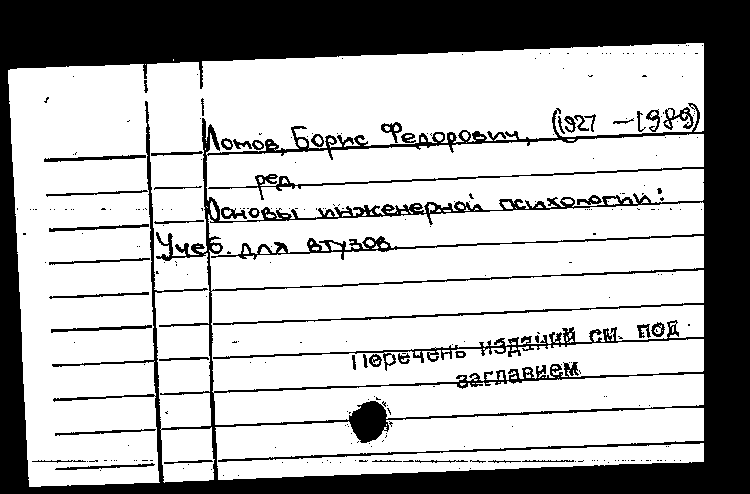 Ломов, Борис Федорович, (1927 — 1989)
ред.
Основы инженерной психологии:
Учеб. для втузов.
Перечень изданий см. под
заглавием